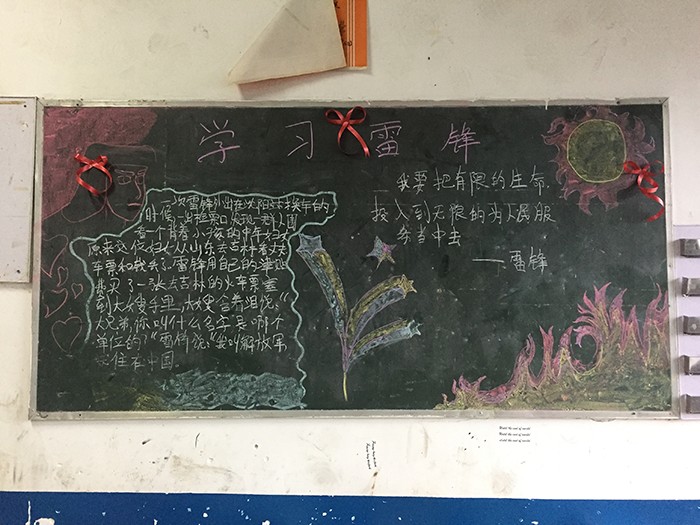 学习雷锋
一次雷锋外出在沈阳站换车的
时候,一出检票口,发现一群人围
看一个背着小孩的中年妇女
原来这位妇女从山东去吉林看丈夫
车票和钱丢了。雷锋用自己的津贴
费买了一张去吉林的火车票塞
到大嫂手里,大嫂含着泪说:“
大兄弟,你叫什么名字,是哪个
单位的?”雷锋说:“我叫解放军,
住在中国。
我要把有限的生命,
投入到无限的为人民服
务当中去
——雷锋